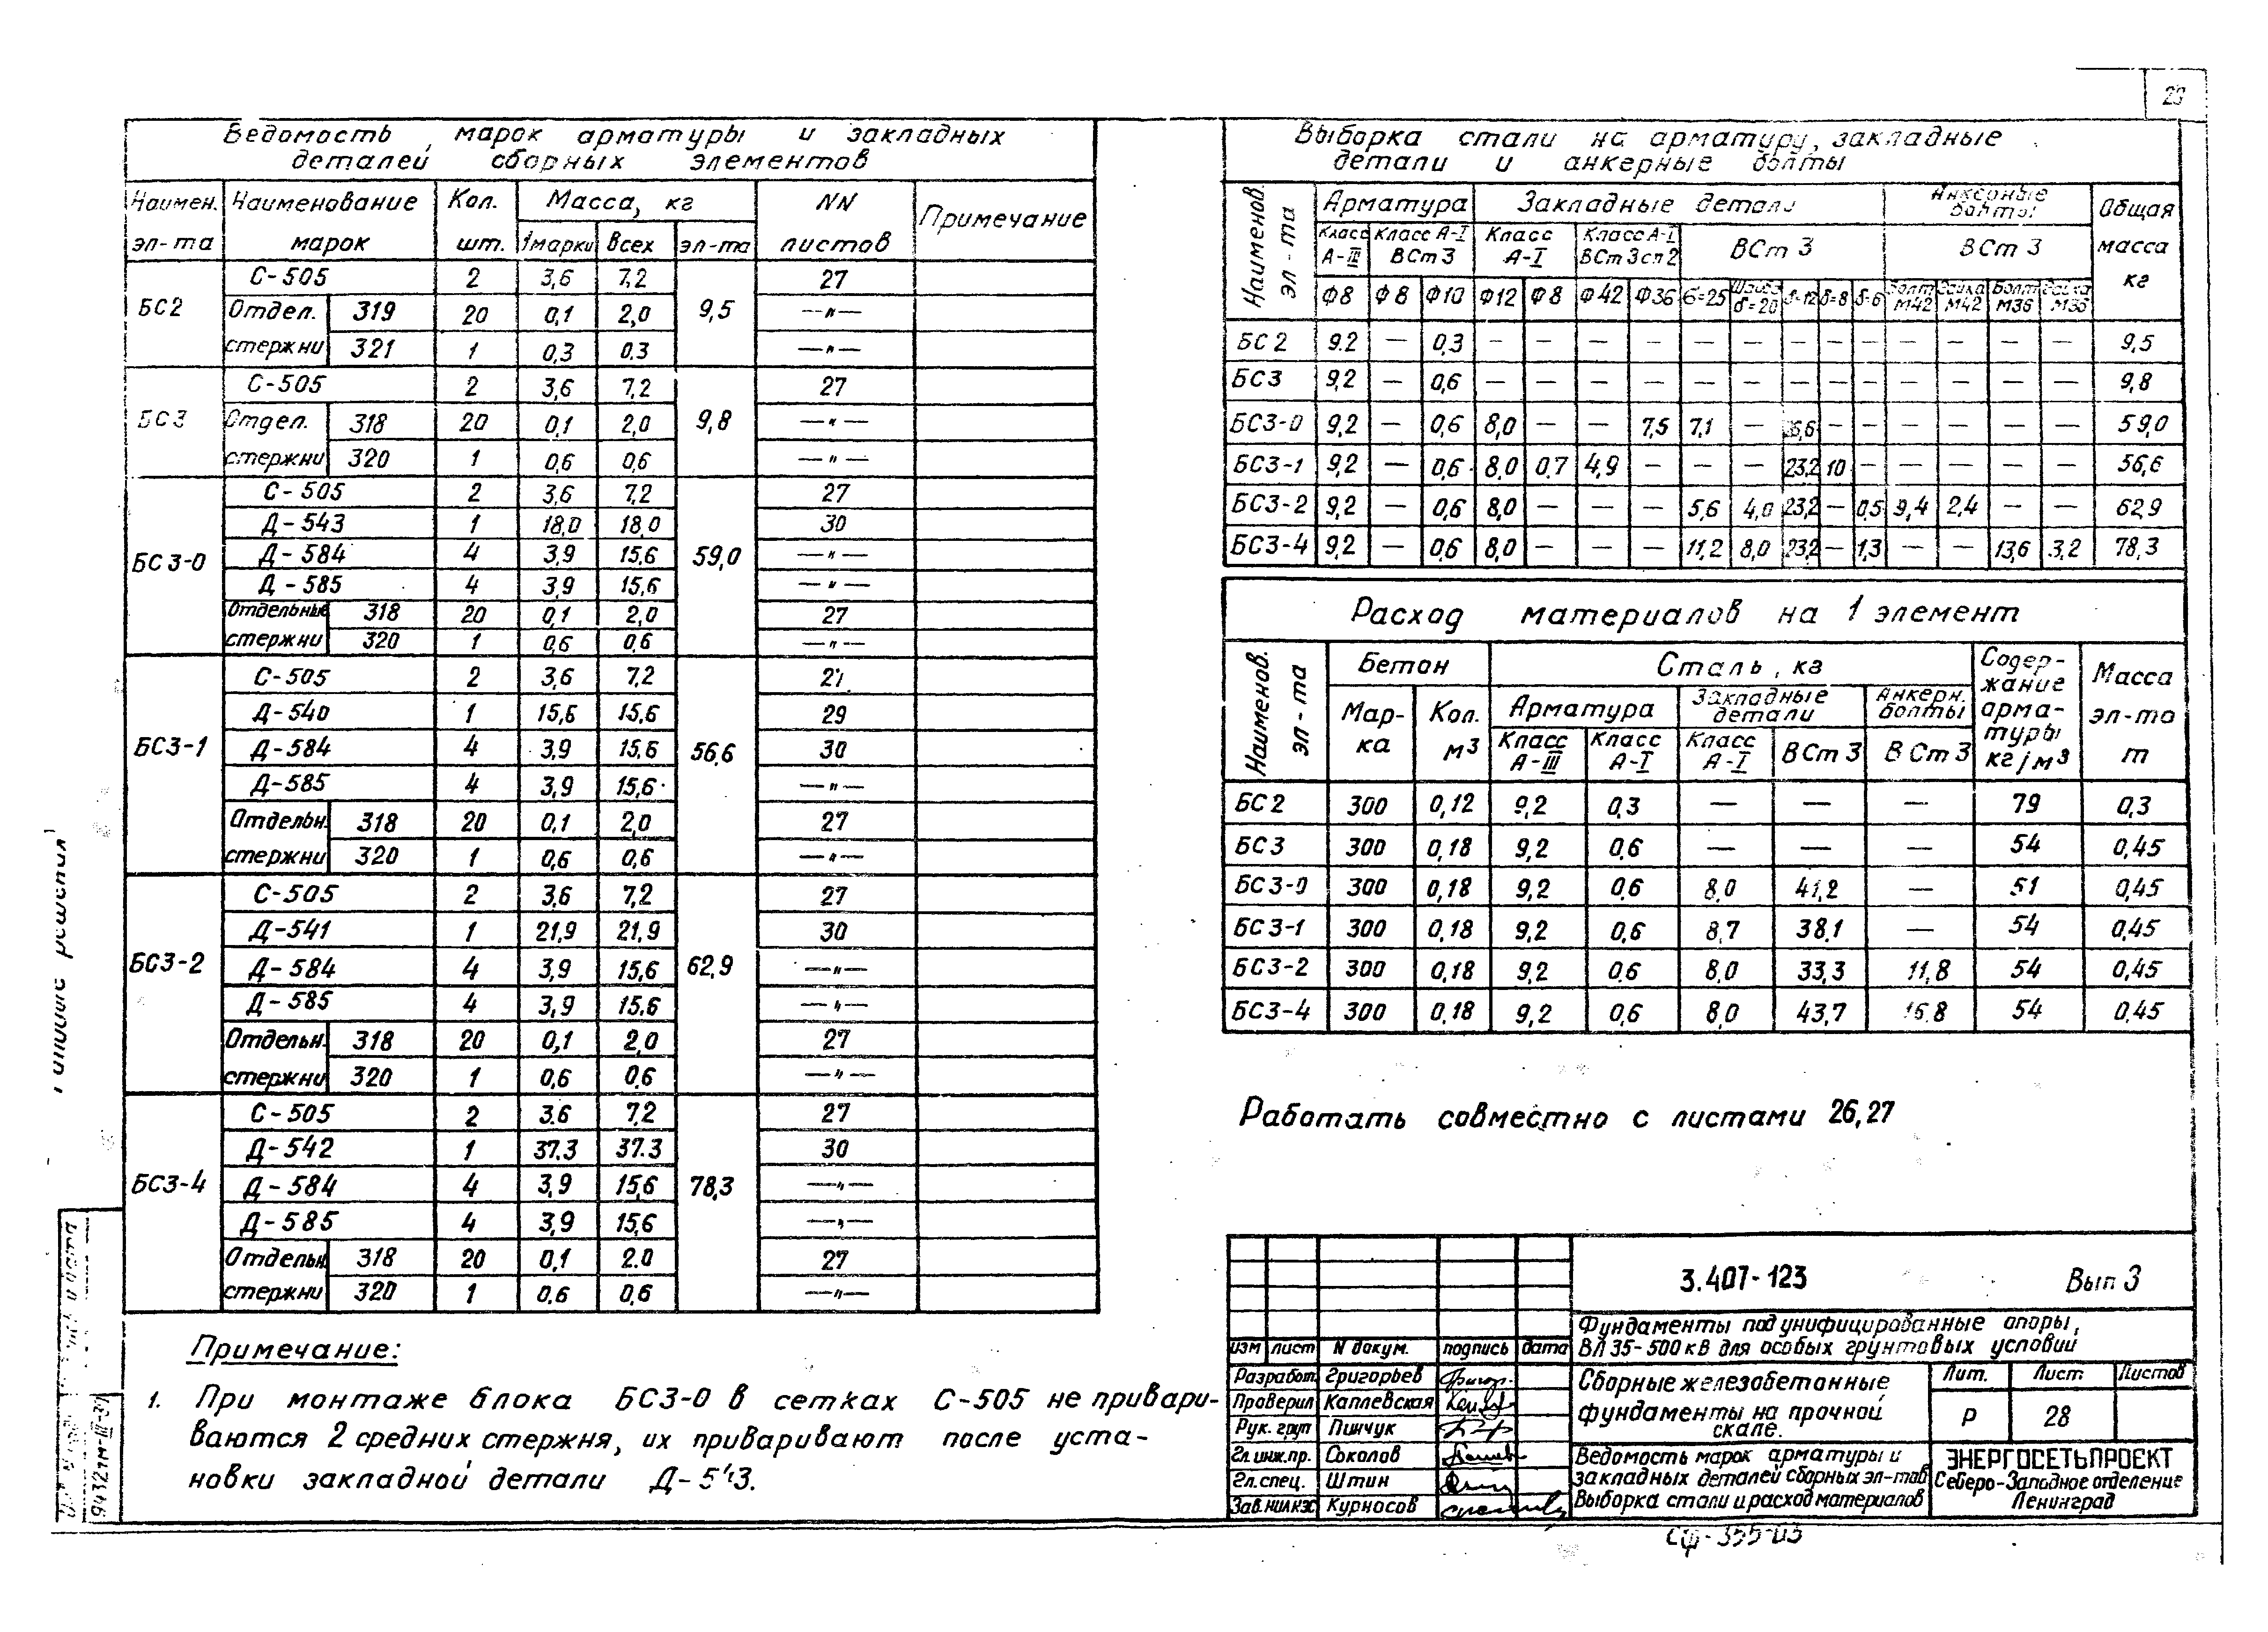 Ведомость марок арматуры и закладных
деталей сборных элементов
Наимен. эл-та | Наименование марок | Кол. шт. | Масса, кг | NN листов | Примечание
1 марки | Всех | эл-та
БС2 | С-505 | 2 | 3,6 | 7,2 | 9,5 | 27
Отдел. стержни | 319 | 20 | 0,1 | 2,0 | —"—
321 | 1 | 0,3 | 0,3 | —"—
БС3 | С-505 | 2 | 3,6 | 7,2 | 9,8 | 27
Отдел. стержни | 318 | 20 | 0,1 | 2,0 | —"—
320 | 1 | 0,6 | 0,6 | —"—
БС3-0 | С-505 | 2 | 3,6 | 7,2 | 59,0 | 27
Д-543 | 1 | 18,0 | 18,0 | 30
Д-584 | 4 | 3,9 | 15,6 | —"—
Д-585 | 4 | 3,9 | 15,6 | —"—
Отдельные стержни | 318 | 20 | 0,1 | 2,0 | 27
320 | 1 | 0,6 | 0,6 | —"—
БС3-1 | С-505 | 2 | 3,6 | 7,2 | 56,6 | 27
Д-540 | 1 | 15,6 | 15,6 | 29
Д-584 | 4 | 3,9 | 15,6 | 30
Д-585 | 4 | 3,9 | 15,6 | —"—
Отдельн. стержни | 318 | 20 | 0,1 | 2,0 | 27
320 | 1 | 0,6 | 0,6 | —"—
БС3-2 | С-505 | 2 | 3,6 | 7,2 | 62,9 | 27
Д-541 | 1 | 21,9 | 21,9 | 30
Д-584 | 4 | 3,9 | 15,6 | —"—
Д-585 | 4 | 3,9 | 15,6 | —"—
Отдельн. стержни | 318 | 20 | 0,1 | 2,0 | 27
320 | 1 | 0,6 | 0,6 | —"—
БС3-4 | С-505 | 2 | 3.6 | 7,2 | 78,3 | 27
Д-542 | 1 | 37.3 | 37.3 | 30
Д-584 | 4 | 3,9 | 15,6 | —"—
Д-585 | 4 | 3,9 | 15,6 | —"—
Отдельн. стержни | 318 | 20 | 0,1 | 2.0 | 27
320 | 1 | 0,6 | 0,6 | —"—
Примечание:
1. При монтаже блока БС3-0 в сетках С-505 не привари-
ваются 2 средних стержня, их приваривают после уста-
новки закладной детали Д-543.
Выборка стали на арматуру, закладные
детали и анкерные болты
Наименов. эл-та | Арматура | Закладные детали | Анкерные болты | Общая масса кг
Класс А-III | Класс А-I ВСт 3 | Класс А-I | Класс А-I ВСт 3 сп 2 | ВСт 3 | ВСт 3
Ф8 | Ф8 | Ф10 | Ф12 | Ф8 | Ф42 | Ф36 | б=25 | Шайба б=20 | б=12 | б=8 | б=6 | Болт М42 | Гайка М42 | Болт М36 | Гайка М36
БС2 | 9.2 | — | 0,3 | — | — | — | — | — | — | — | — | — | — | — | — | — | 9,5
БС3 | 9,2 | — | 0,6 | — | — | — | — | — | — | — | — | — | — | — | — | — | 9,8
БС3-0 | 9,2 | — | 0,6 | 8,0 | — | — | 7,5 | 7,1 | — | 26,6 | — | — | — | — | — | — | 59,0
БС3-1 | 9,2 | — | 0,6 | 8,0 | 0.7 | 4,9 | — | — | — | 23,2 | 10 | — | — | — | — | — | 56,6
БС3-2 | 9,2 | — | 0,6 | 8,0 | — | — | — | 5,6 | 4,0 | 23,2 | — | 0,5 | 9,4 | 2,4 | — | — | 62,9
БС3-4 | 9,2 | — | 0,6 | 8,0 | — | — | — | 11,2 | 8,0 | 23,2 | — | 1,3 | — | — | 13,6 | 3,2 | 78,3
Расход материалов на 1 элемент
Наименов. эл-та | Бетон | Сталь, кг | Содержание арматуры кг/м3 | Масса эл-та т
Марка | Кол. м3 | Арматура | Закладные детали | Анкерн. болты
Класс А-III | Класс А-I | Класс А-I | ВСт 3 | В Ст 3
БС2 | 300 | 0,12 | 9,2 | 0,3 | — | — | — | 79 | 0,3
БС3 | 300 | 0,18 | 9,2 | 0,6 | — | — | — | 54 | 0,45
БС3-0 | 300 | 0,18 | 9,2 | 0,6 | 8,0 | 41,2 | — | 51 | 0,45
БС3-1 | 300 | 0,18 | 9,2 | 0,6 | 8,7 | 38,1 | — | 54 | 0,45
БС3-2 | 300 | 0,18 | 9,2 | 0,6 | 8,0 | 33,3 | 11,8 | 54 | 0,45
БС3-4 | 300 | 0,18 | 9,2 | 0,6 | 8,0 | 43,7 | 16,8 | 54 | 0,45
Работать совместно с листами 26,27
3.407-123 Вып 3
Фундаменты под унифицированные опоры,
ВЛ 35-500 кВ для особых грунтовых условий
изм | лист | N докум. | подпись | дата
Разработ. Григорьев
Проверил Каплевская
Рук. груп Пинчук
Гл. инж. пр. Соколов
Гл. спец. Штин
Зав. НИЛКЭС Курносов
Сборные железобетонные
фундаменты на прочной
скале.
Лит. | Лист | Листов
Р | 28
Ведомость марок арматуры и
закладных деталей сборных эл-тов
Выборка стали и расход материалов
ЭНЕРГОСЕТЬПРОЕКТ
Северо-Западное отделение
Ленинград
9432тм-III-31
сф-355-03